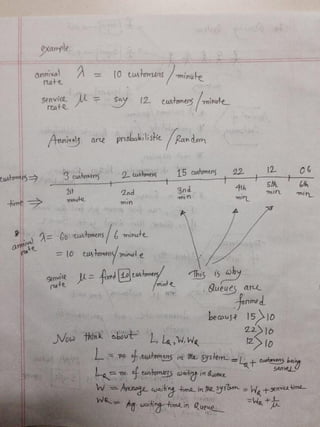 example
arrival rate λ = 10 customers/minute
service rate μ = say 12 customers/minute
Arrivals are probabilistic/Random
customers ⇒ 3 customers 2 customers 15 customers 22 12 06
time ⇒ 1st minute 2nd min 3rd min 4th min 5th min 6th min
arrival rate λ = 60 customers/6 minute
= 10 customers/minute
service rate μ = fixed 10 customers/minute
This is why
Queues are
formed
because 15>10
22>10
12>10
Now think about L, LQ, W, WQ
L = no of customers in the system = LQ + customers being served
LQ = no of customers waiting in Queue
W = Average waiting time in the system = WQ + service time
= WQ + 1/μ
WQ = Avg waiting time in Queue